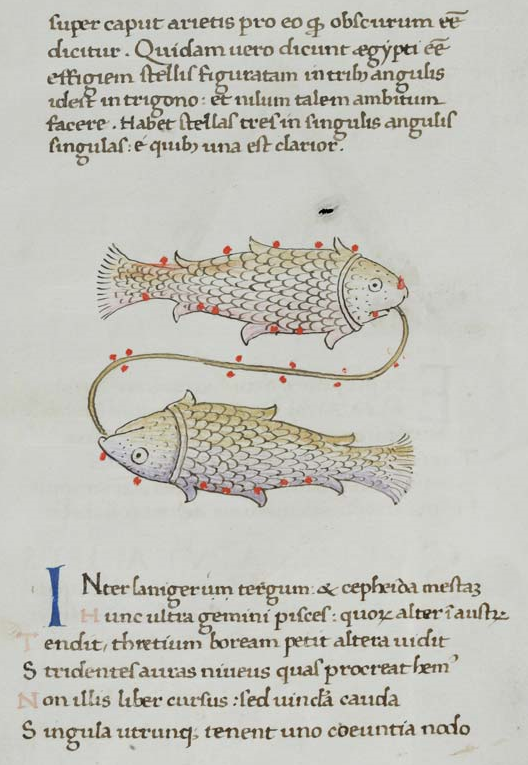 super caput arietis pro eo ꝙ obscurum eē
dicitur. Quidam uero dicunt ægypti eē
effigiem stellis figuratam in trib; angulis
idest in trigono: et nilum talem ambitum
facere. Habet stellas tres in singulis angulis
singulas: e quib; una est clarior.
INter lanigerum tergum: & cepheida mestaʒ
Hunc ultra gemini pisces: quoꝝ alter ī austꝝ
Tendit, threicium boream petit altera uidit
Stridentes auras niueus quas procreat hem᾽
Non illis liber cursus: sed uincła cauda
Singula utrunq; tenent uno coeuntia nodo